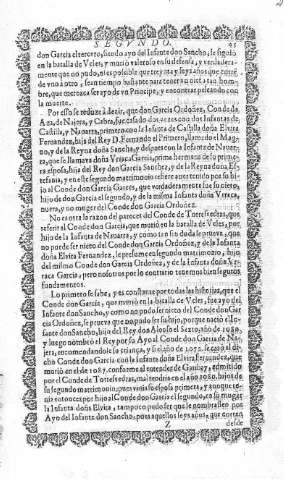 SEGVNDO. 95
don Garcia el tercero, siendo ayo del Infante don Sancho, le siguió
en la batalla de Veles, y murió valeroso en su defensa, y verdadera-
mente que no pudo, ni es posible que treynta y seys años que
de uno a otro, sea tiempo bastante para tener un nieto tan hom-
bre, que merezca ser ayo de un Principe, y encontrar peleando con
la muerte.
Por esso se reduze à dezir, que don Garcia Ordoñez, Conde de la
Aza, de Najera, y Cabra, fue casado dos vezes con dos Infantas de
Castilla, y Nauarra, primero con la Infanta de Castilla doña Eluira
Fernandez, hija del Rey D. Fernando el Primero, llamado el Mag-
no, y de la Reyna doña Sancha, y despues con la Infanta de Nauar-
ra, que se llamaua doña Vrraca Garcia, prima hermana de su prime-
ra esposa, hija del Rey don Garcia Sanchez, y de la Reyna doña Es-
tefania, y en este segundo matrimonio auer tenido por su hi-
jo al Conde don Garcia Garces, que verdaderamente fue su
hijo de don Garcia el segundo, y de la misma Infanta doña Vrraca,
nieto, y no del Conde don Garcia Ordoñez.
No contra la razon del parecer del Conde de Torres secas, que
refiere al Conde don Garcia, que murió en la batalla de Veles, por
hijo de la Infanta de Nauarra, y como sin duda se prueua, que
no puede ser nieto del Conde don Garcia Ordoñez, y de la Infanta
doña Eluira Fernandez, le presume segundo matrimonio, hijo
del mismo Conde don Garcia Ordoñez, y de la Infanta doña Vr-
raca Garcia, pero nosotros por lo contrario tenemos bien seguros
fundamentos.
Lo primero se sabe, y es constante por todas las historias, que el
Conde don Garcia, que murió en la batalla de Veles, fue ayo del
Infante don Sancho, y como no pudo ser nieto del Conde don Gar-
cia Ordoñez, se prueua que no pudo ser su hijo, porque nació el In-
fante don Sancho, hijo del Rey don Alonso el Sexto, año de
y luego nombró el Rey por su Ayo al Conde don Garcia de Na-
jera, recomendandole la criança, y si el año de se casó el di-
cho Conde don Garcia con la Infanta doña Eluira Fernandez, que
murió en el de 1087. conforme al entender de Garibay, admitido
por el Conde de Torresecas, mal tendria en el año hijos de
su segundo matrimonio,
tenia entonces por hijo al Conde don Garcia el segundo, en su muger
la Infanta doña Eluira, tampoco pudo ser que le nombrassen por
Ayo del Infante don Sancho, pues aquellos seys años, que corren
Z desde